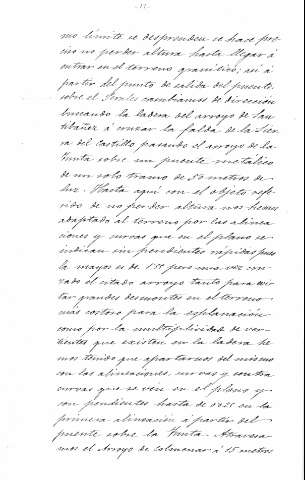 mo límite se desprenden se hace pre-
ciso no perder altura hasta llegar á
entrar en el terreno granítico; así á
partir del punto de salida del puente
sobre el cambiamos de dirección
buscando la ladera del arroyo de San-
tibáñez á cruzar la falda de la Sier-
ra del Castillo pasando el arroyo de la
sobre un puente metálico
de un solo tramo de 50 metros de
luz. Hasta aquí con el objeto refe-
rido de no perder altura nos hemos
adaptado al terreno por las alinea-
ciones y curvas que en el plano se
indican sin pendientes rápidas pues
la mayor es de pero una vez cru-
zado el citado arroyo tanto para evi-
tar grandes desmontes en el terreno
más costoso para la explanación
como por la multiplicidad de ver-
tientes que existen en la ladera he-
mos tenido que apartarnos del mismo
con las alineaciones, curvas y contra
curvas que se ven en el plano y
con pendientes hasta de 0'025 en la
primera alineación á partir del
puente sobre la Atravesa-
mos el Arroyo de Colmenar á 15 metros